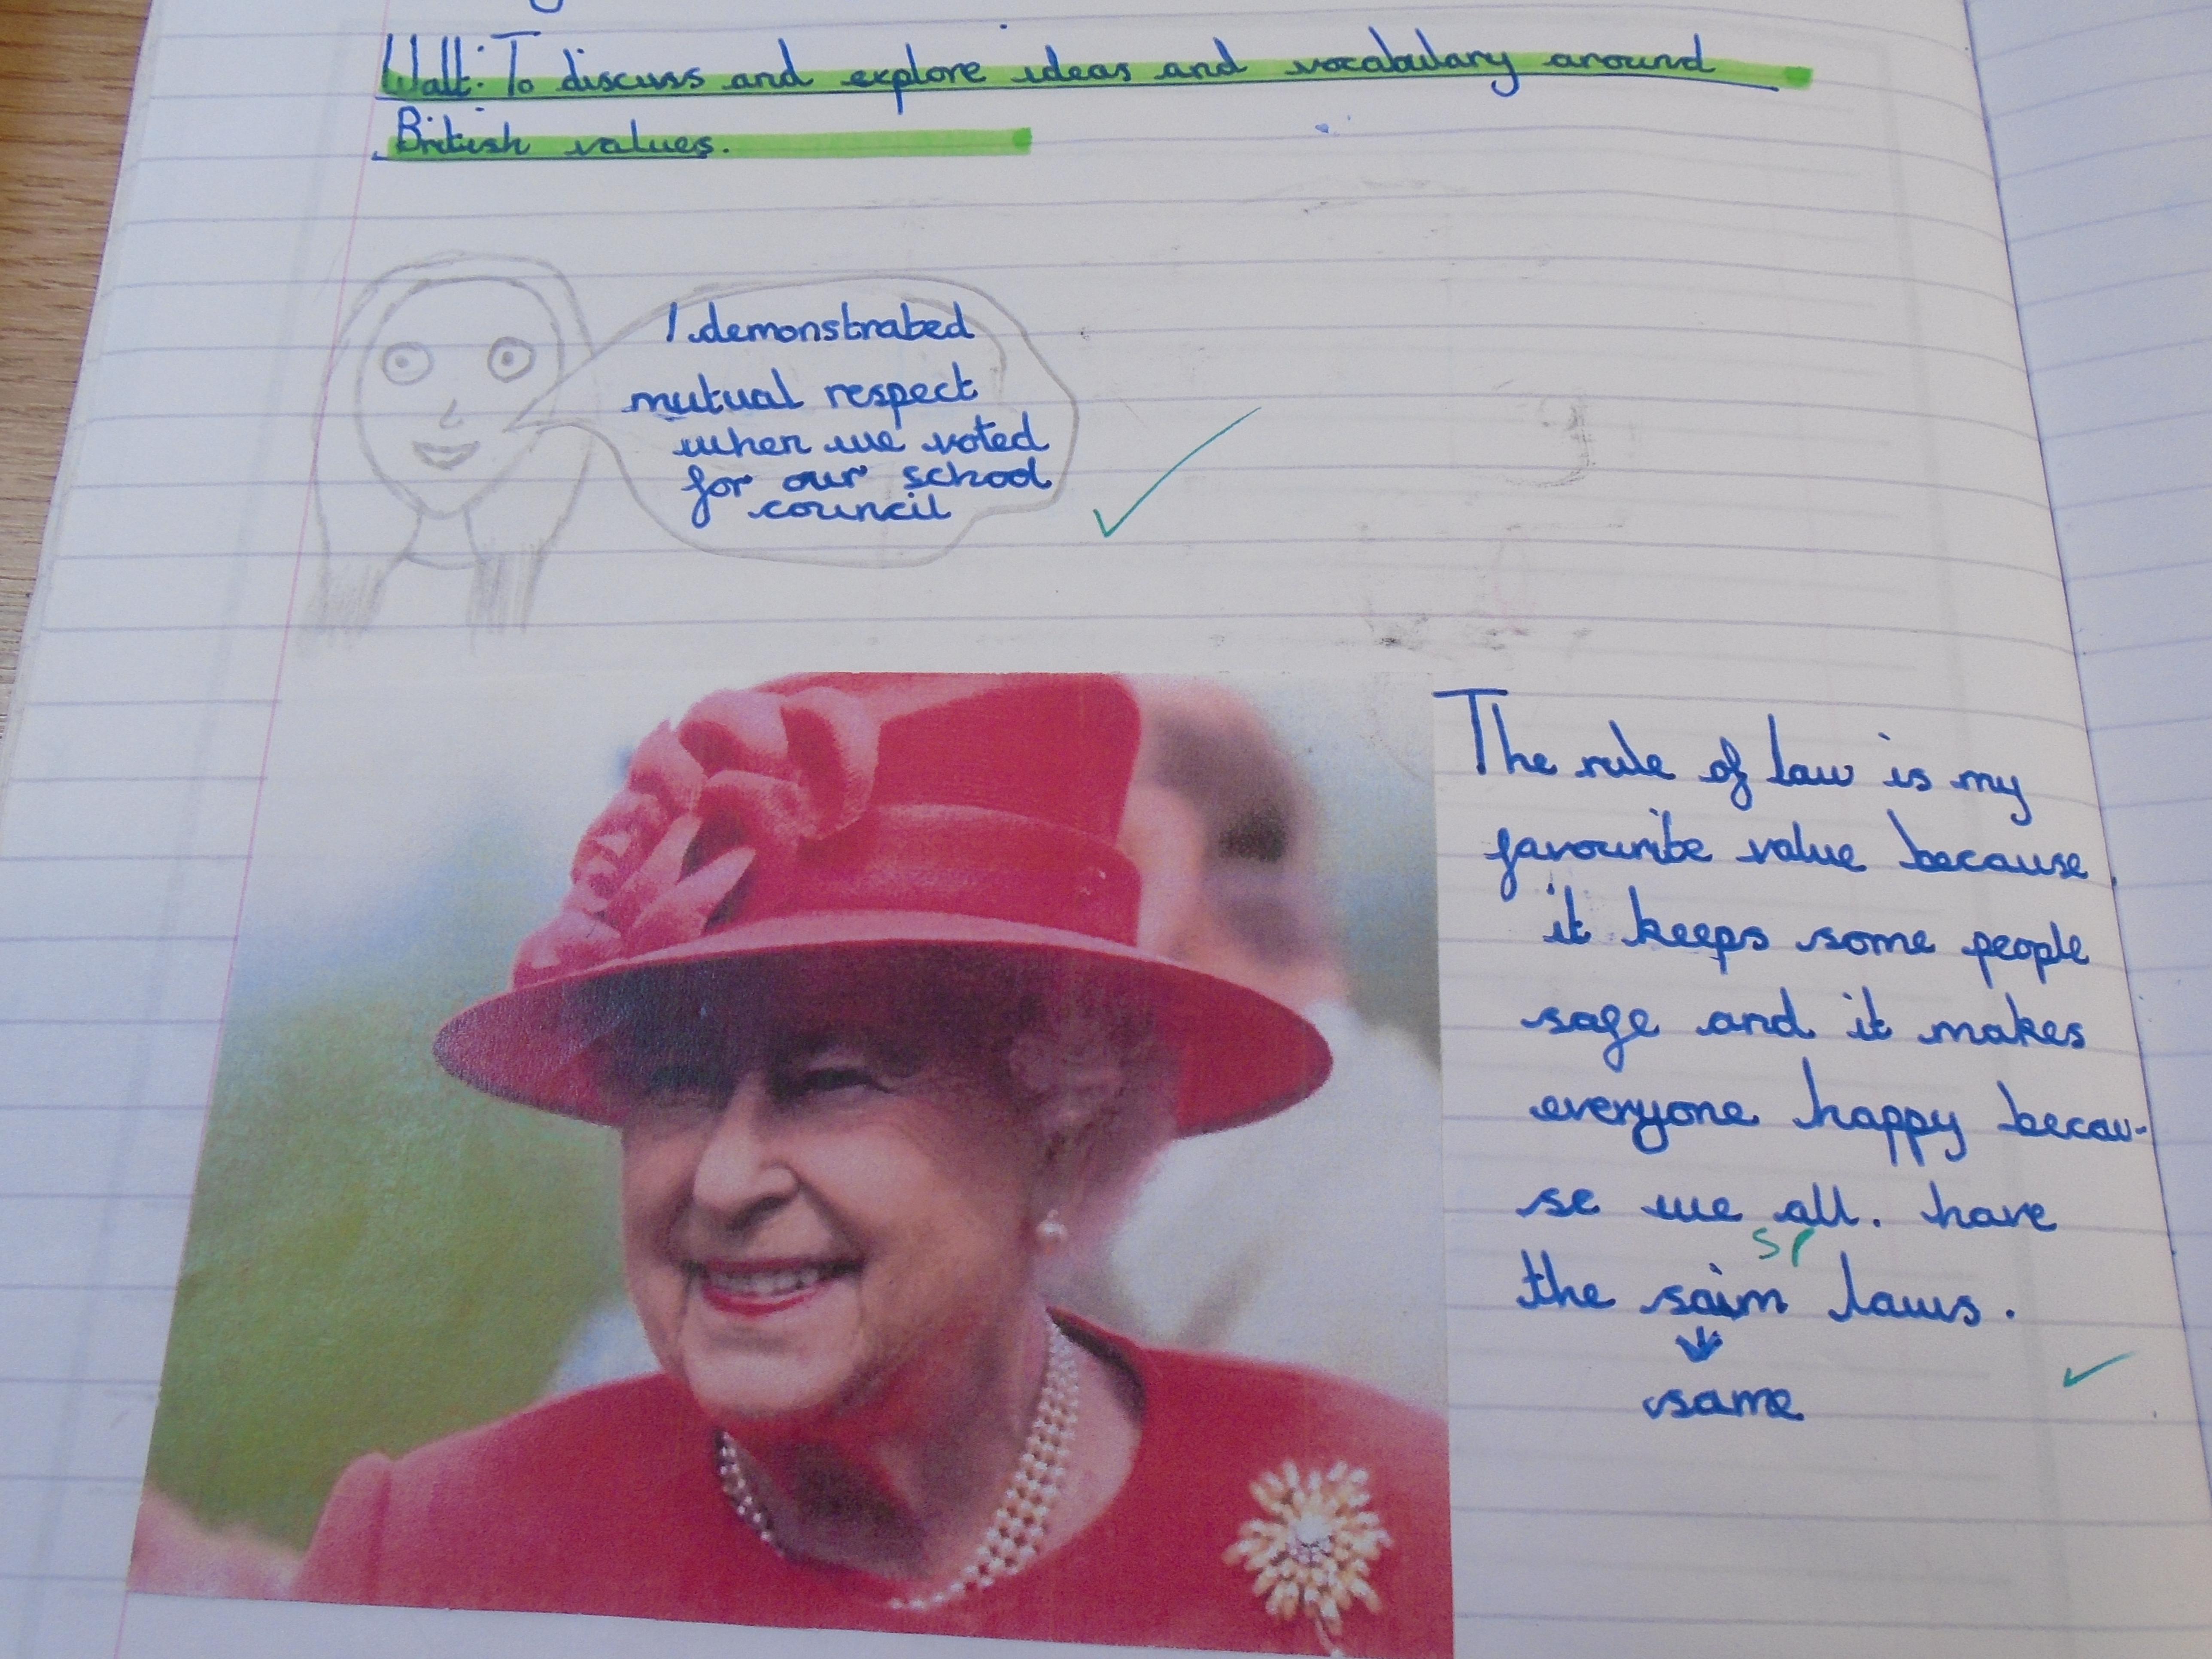 Walt: To discuss and explore ideas and vocabulary around
British values.
I demonstrated
mutual respect
when we voted
for our school
council
The rule of law is my
favourite value because
it keeps some people
safe and it makes
everyone happy becau-
se we all. have
sp
the saim laws.
same